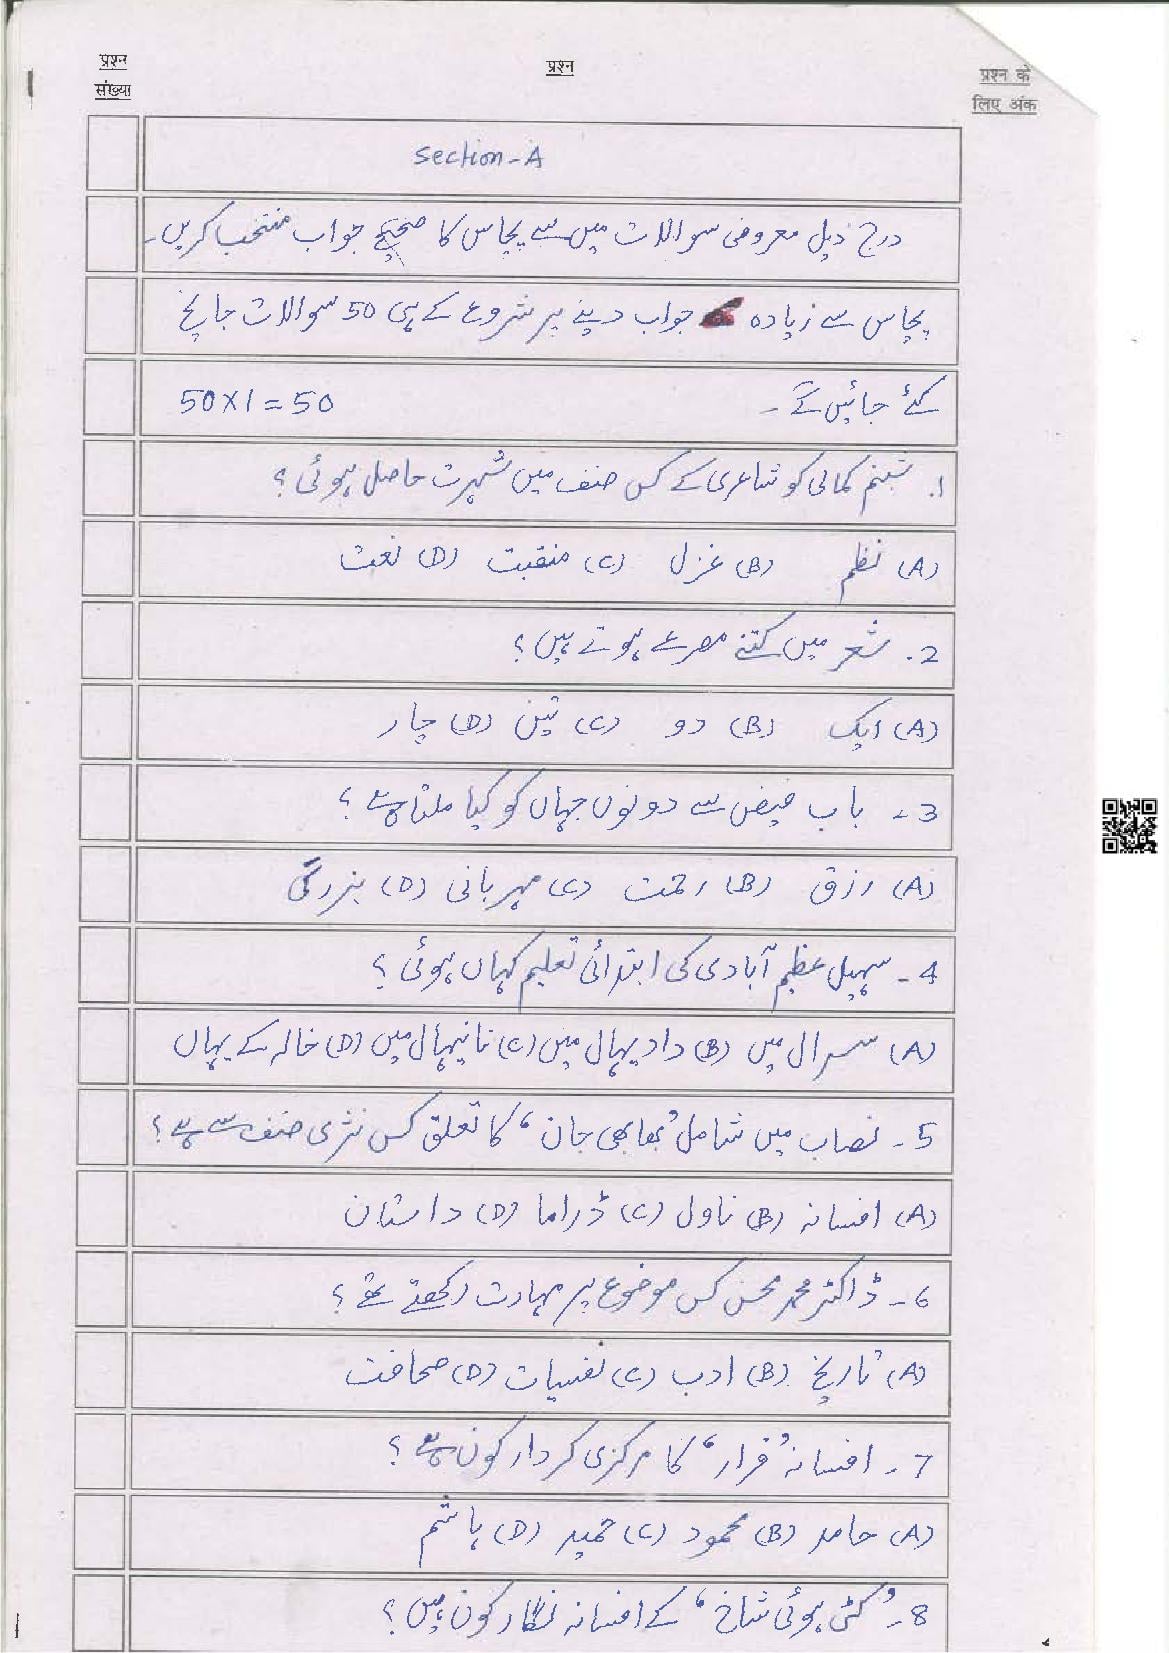 प्रश्न संख्या
प्रश्न
प्रश्न के लिए अंक
Section-A
درج ذیل معروضی سوالات میں سے پچاس کا صحیح جواب منتخب کریں۔
پچاس سے زیادہ جواب دینے پر شروع کے ہی 50 سوالات جانچ
کئے جائیں گے۔ 50×1=50
1. شبنم کمالی کو شاعری کے کس صنف میں شہرت حاصل ہوئی؟
(A) نظم (B) غزل (C) منقبت (D) نعت
2. شعر میں کتنے مصرعے ہوتے ہیں؟
(A) ایک (B) دو (C) تین (D) چار
3۔ باب فیض سے دونوں جہاں کو کیا ملتا ہے؟
(A) رزق (B) رحمت (C) مہربانی (D) بزرگی
4۔ سہیل عظیم آبادی کی ابتدائی تعلیم کہاں ہوئی؟
(A) سسرال میں (B) دادیہال میں (C) نانیہال میں (D) خالہ کے یہاں
5۔ نصاب میں شامل ’بھابھی جان‘ کا تعلق کس نثری صنف سے ہے؟
(A) افسانہ (B) ناول (C) ڈراما (D) داستان
6۔ ڈاکٹر محمد محسن کس موضوع پر مہارت رکھتے تھے؟
(A) تاریخ (B) ادب (C) نفسیات (D) صحافت
7۔ افسانہ ’فرار‘ کا مرکزی کردار کون ہے؟
(A) حامد (B) محمود (C) حمید (D) ہاشم
8۔ ’کٹی ہوئی شاخ‘ کے افسانہ نگار کون ہیں؟